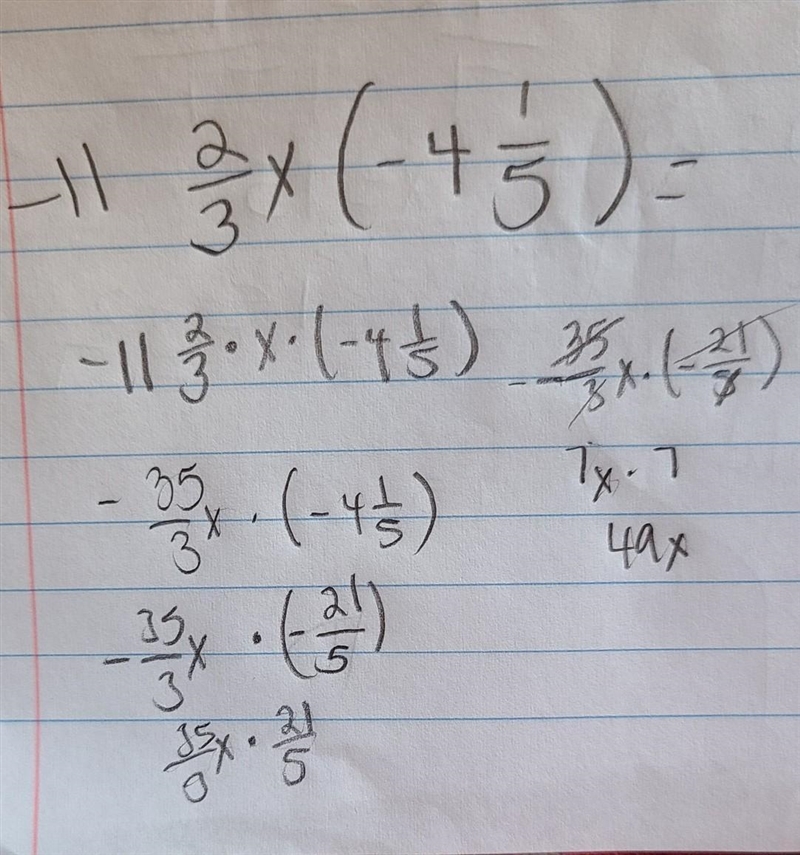 -11 2/3 x (-4 1/5) =
-11 2/3 · x · (-4 1/5)
-35/3 x · (-4 1/5)
-35/3 x · (-21/5)
35/0 x · 21/5
- -35/3 x · (-21/5)
7x · 7
49x